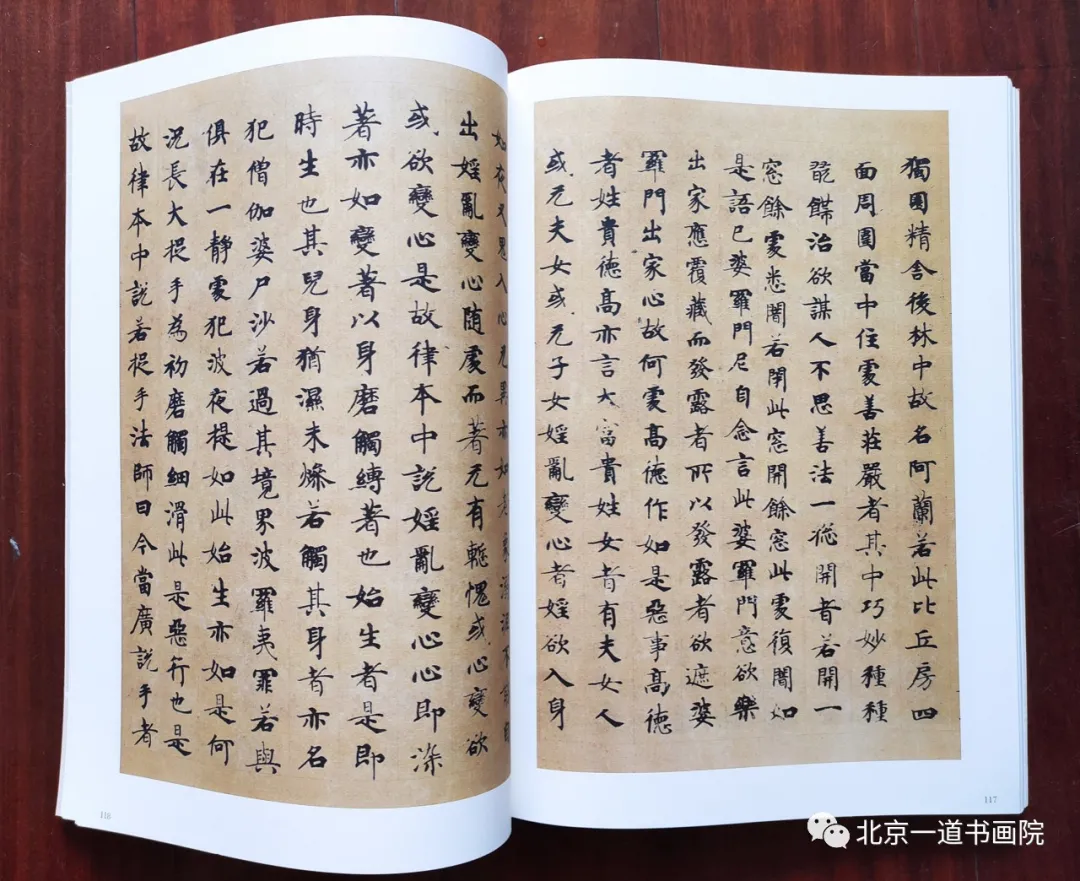 獨園精舍後林中故名阿蘭若此比丘房四
面周圍當中住處善莊嚴者其中巧妙種種
餝治欲謀人不思善法一㧾開者若開一
窓餘處悉闇若閇此窓開餘窓此處復闇如
是語已婆羅門尼自念言此婆羅門意欲樂
出家應覆藏而發露者所以發露者欲遮婆
羅門出家心故何處高德作如是惡事高德
者姓貴德高亦言大富貴姓女者有夫女人
或无夫女或无子女婬亂變心者婬欲入身
117
如夜叉鬼入心无異亦如老象溺
出婬亂變心随處而著无有慙愧或心變欲
或欲變心是故律本中說婬亂變心心即染
著亦如變著以身磨觸縛著也始生者是即
時生也其兒身猶濕未燥若觸其身者亦名
犯僧伽婆尸沙若過其境界波羅夷罪若與
俱在一静處犯波夜提如此始生亦如是何
況長大捉手為初磨觸細滑此是惡行也是
故律本中說若捉手法師曰今當廣說手者
118
北京一道书画院